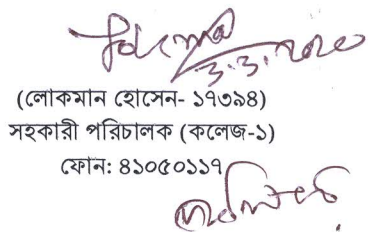 ৩.৩.২০২০
(লোকমান হোসেন- ১৭৩৯৪)
সহকারী পরিচালক (কলেজ-১)
ফোন: ৪১০৫০১১৭